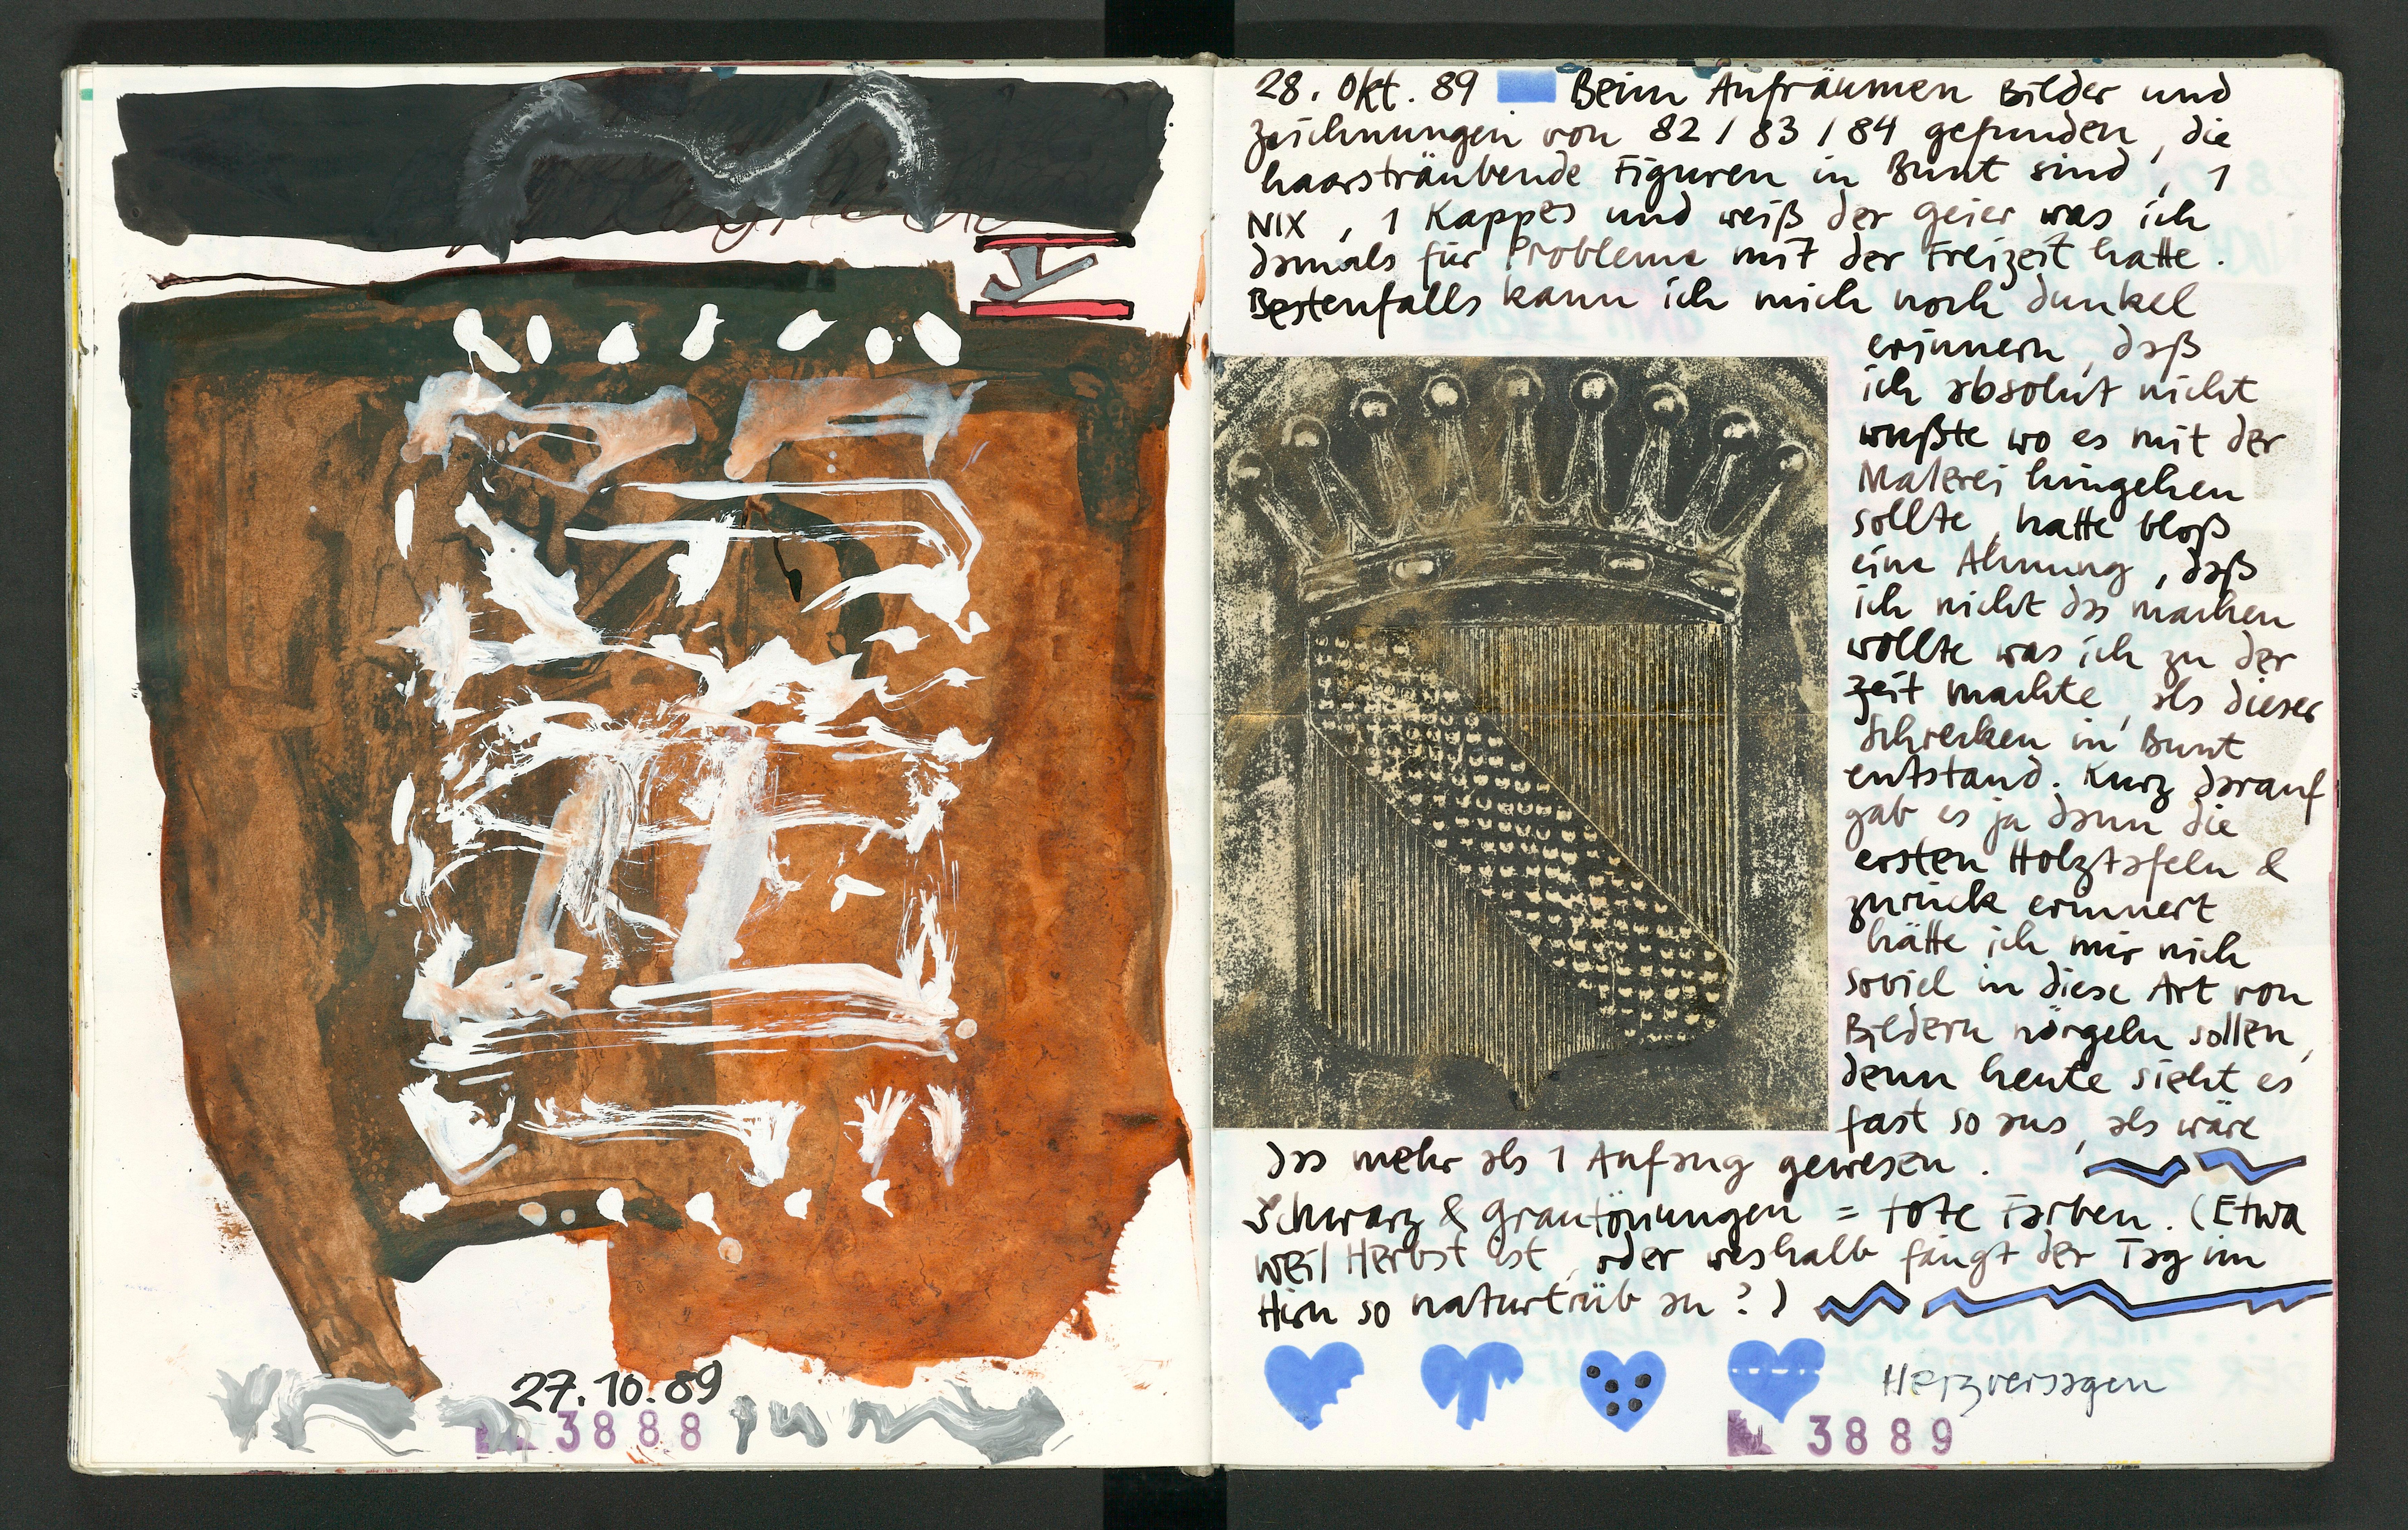 27.10.89
3888
28. Okt. 89 Beim Aufräumen Bilder und
Zeichnungen von 82 / 83 / 84 gefunden, die
haarsträubende Figuren in Bunt sind, 1
NIX, 1 Kappes und weiß der Geier was ich
damals für Probleme mit der Freizeit hatte.
Bestenfalls kann ich mich noch dunkel
erinnern, daß
ich absolut nicht
wußte wo es mit der
Malerei hingehen
sollte, hatte bloß
eine Ahnung, daß
ich nicht das machen
wollte was ich zu der
Zeit machte, als dieser
Schrecken in Bunt
entstand. Kurz darauf
gab es ja dann die
ersten Holztafeln &
zurück erinnert
hätte ich mir nich
soviel in diese Art von
Bildern nörgeln sollen,
denn heute sieht es
fast so aus, als wäre
das mehr als 1 Anfang gewesen.
Schwarz & Grautönungen = tote Farben. (Etwa
weil Herbst ist, oder weshalb fängt der Tag im
Hirn so naturtrüb an?)
Herzversagen
3889